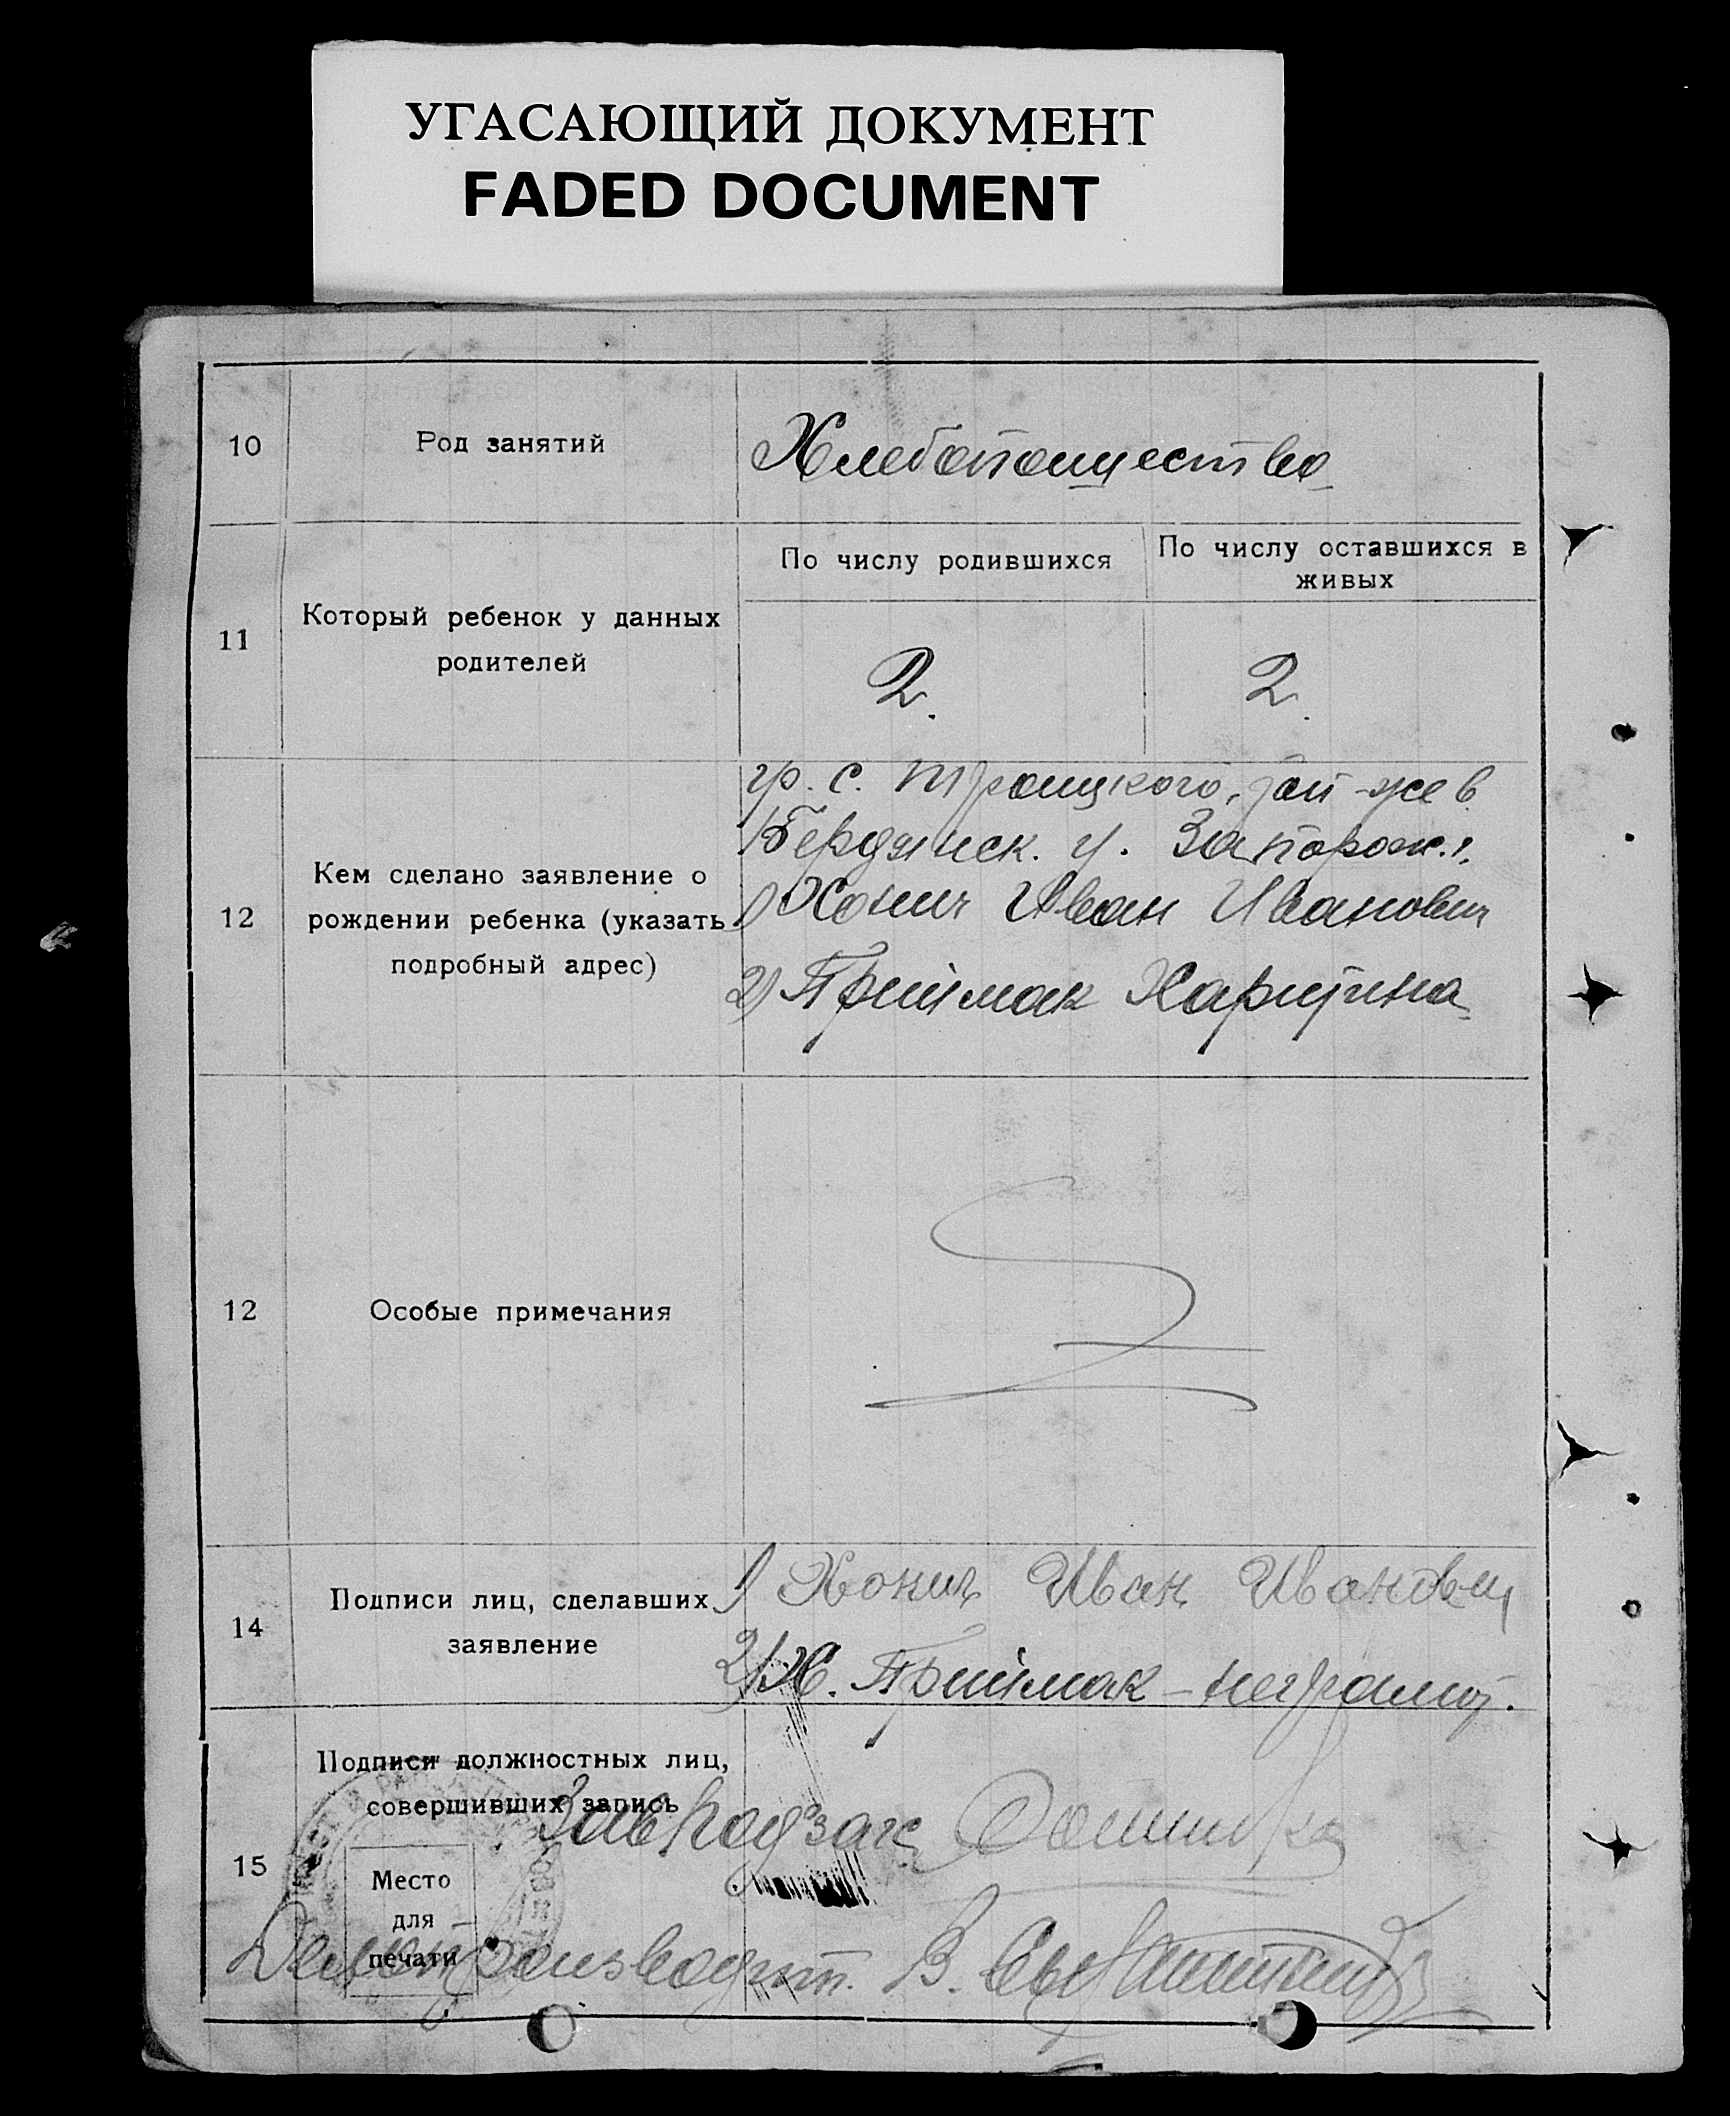 УГАСАЮЩИЙ ДОКУМЕНТ
FADED DOCUMENT
10
Род занятий
Хлебопашество
11
Который ребенок у данных
родителей
По числу родившихся
По числу оставшихся в
живых
2.
2.
12
Кем сделано заявление о
рождении ребенка (указать
подробный адрес)
гр. с. Троицкого, той-же в.
Бердянск. у. Запорож. г.
1) Хонич Иван Иванович
2) Приймак Харитина
12
Особые примечания
14
Подписи лиц, сделавших
заявление
1) Хонич Иван Иванович
2) Х. Приймак – неграмот.
15
Подписи должностных лиц,
совершивших запись
Место
для
печати
Зав Подзагс
Делопроизводит. В.